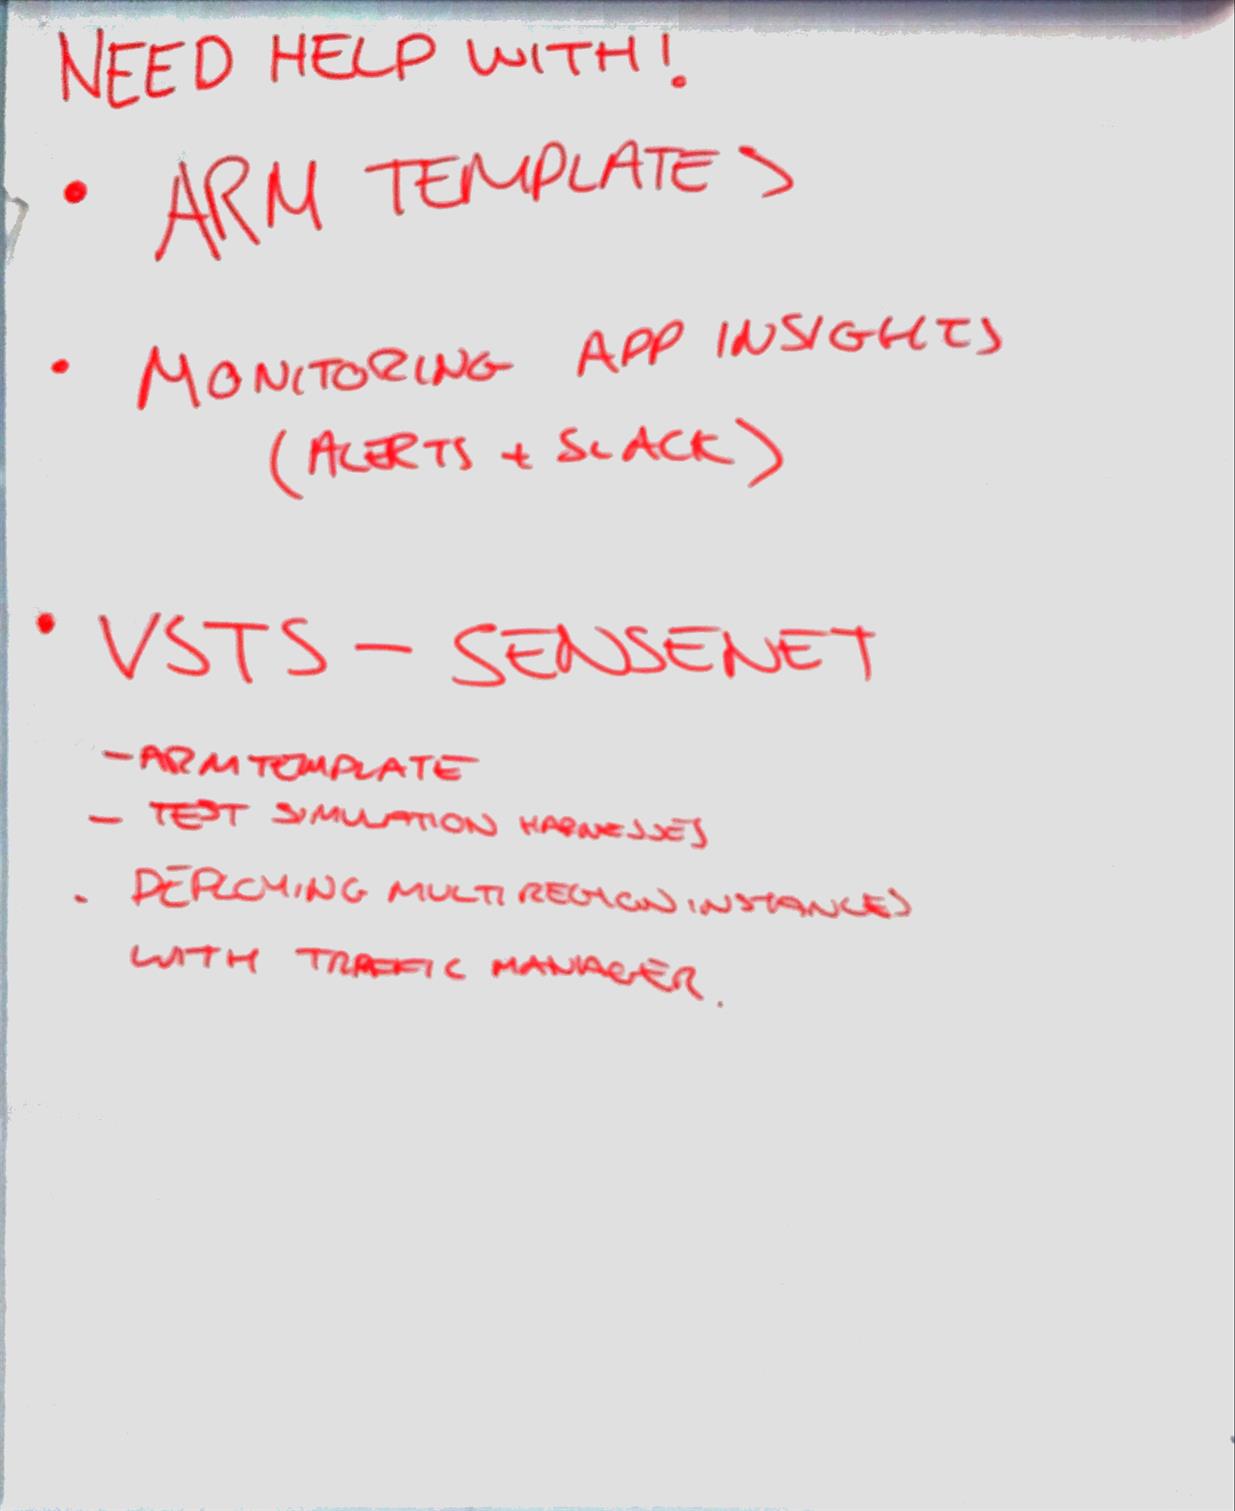 NEED HELP WITH!
• ARM TEMPLATES
• MONITORING APP INSIGHTS
(ALERTS + SLACK)
• VSTS – SENSENET
– ARM TEMPLATE
– TEST SIMULATION HARNESSES
. DEPLOYING MULTI REGION INSTANCES
WITH TRAFFIC MANAGER.